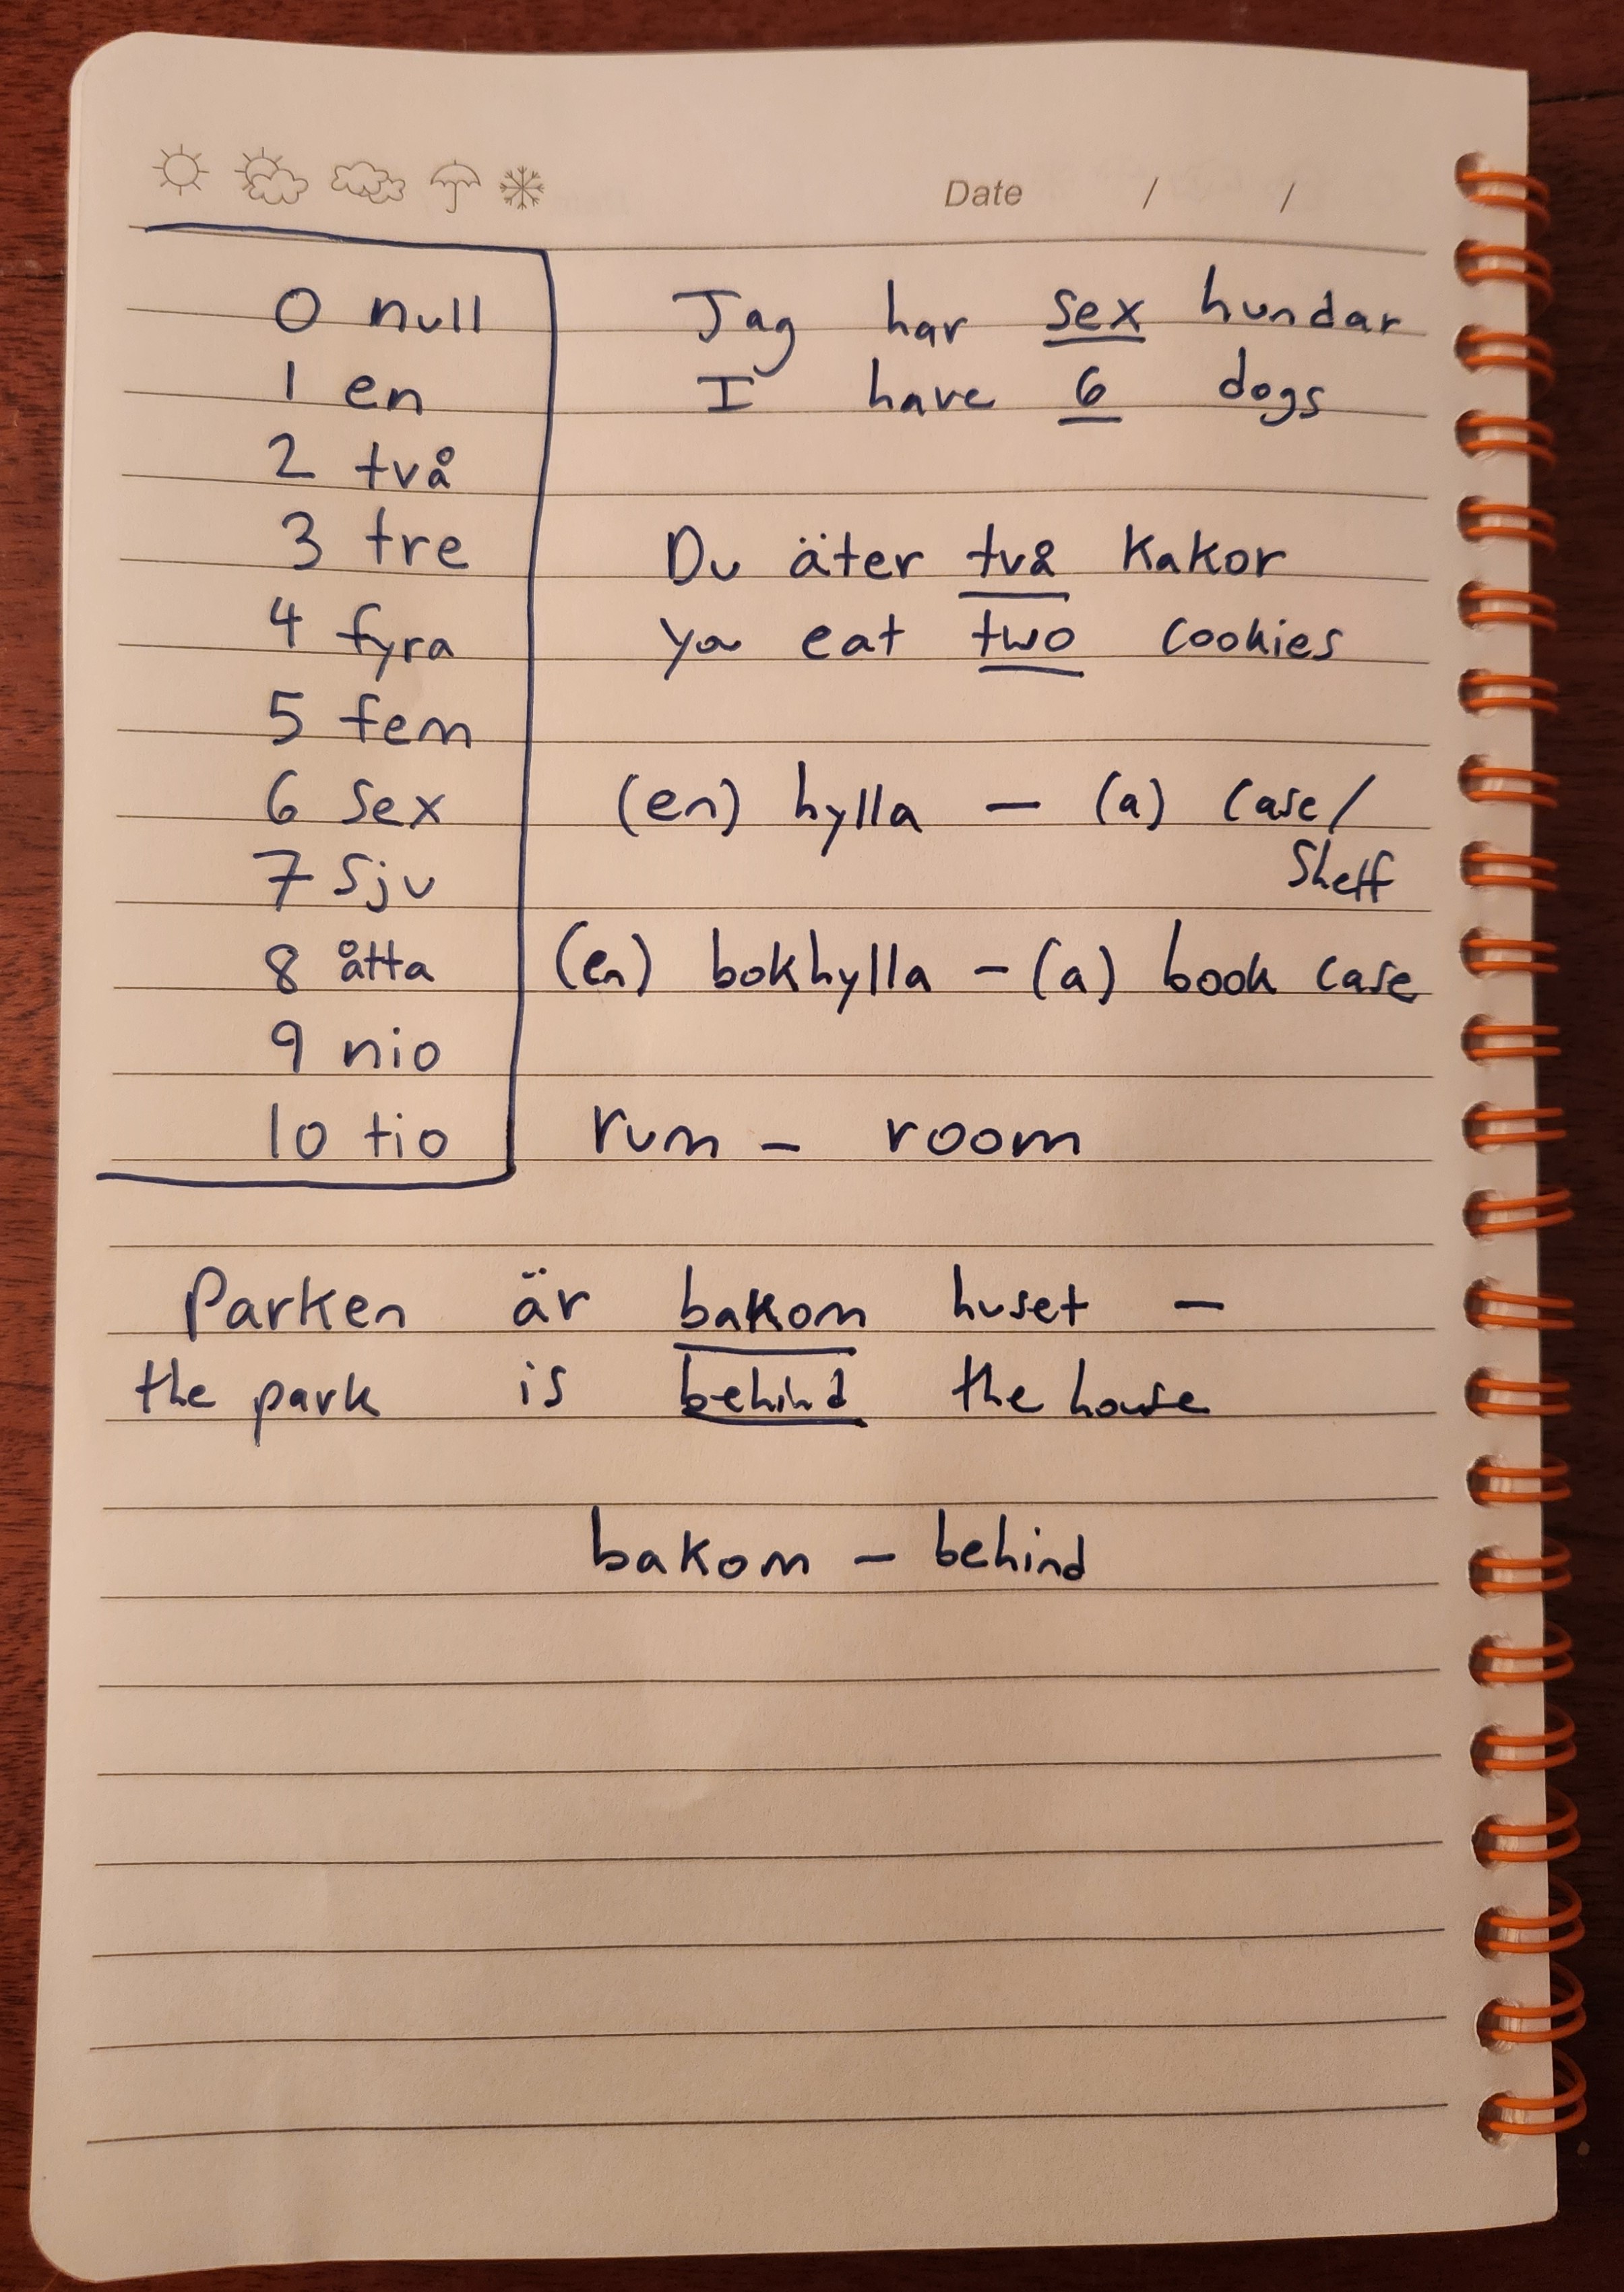 Date / /
0 null
1 en
2 två
3 tre
4 fyra
5 fem
6 sex
7 sju
8 åtta
9 nio
10 tio
Jag har sex hundar
I have 6 dogs
Du äter två kakor
you eat two cookies
(en) hylla – (a) case/
shelf
(en) bokhylla – (a) book case
rum – room
Parken är bakom huset –
the park is behind the house
bakom – behind